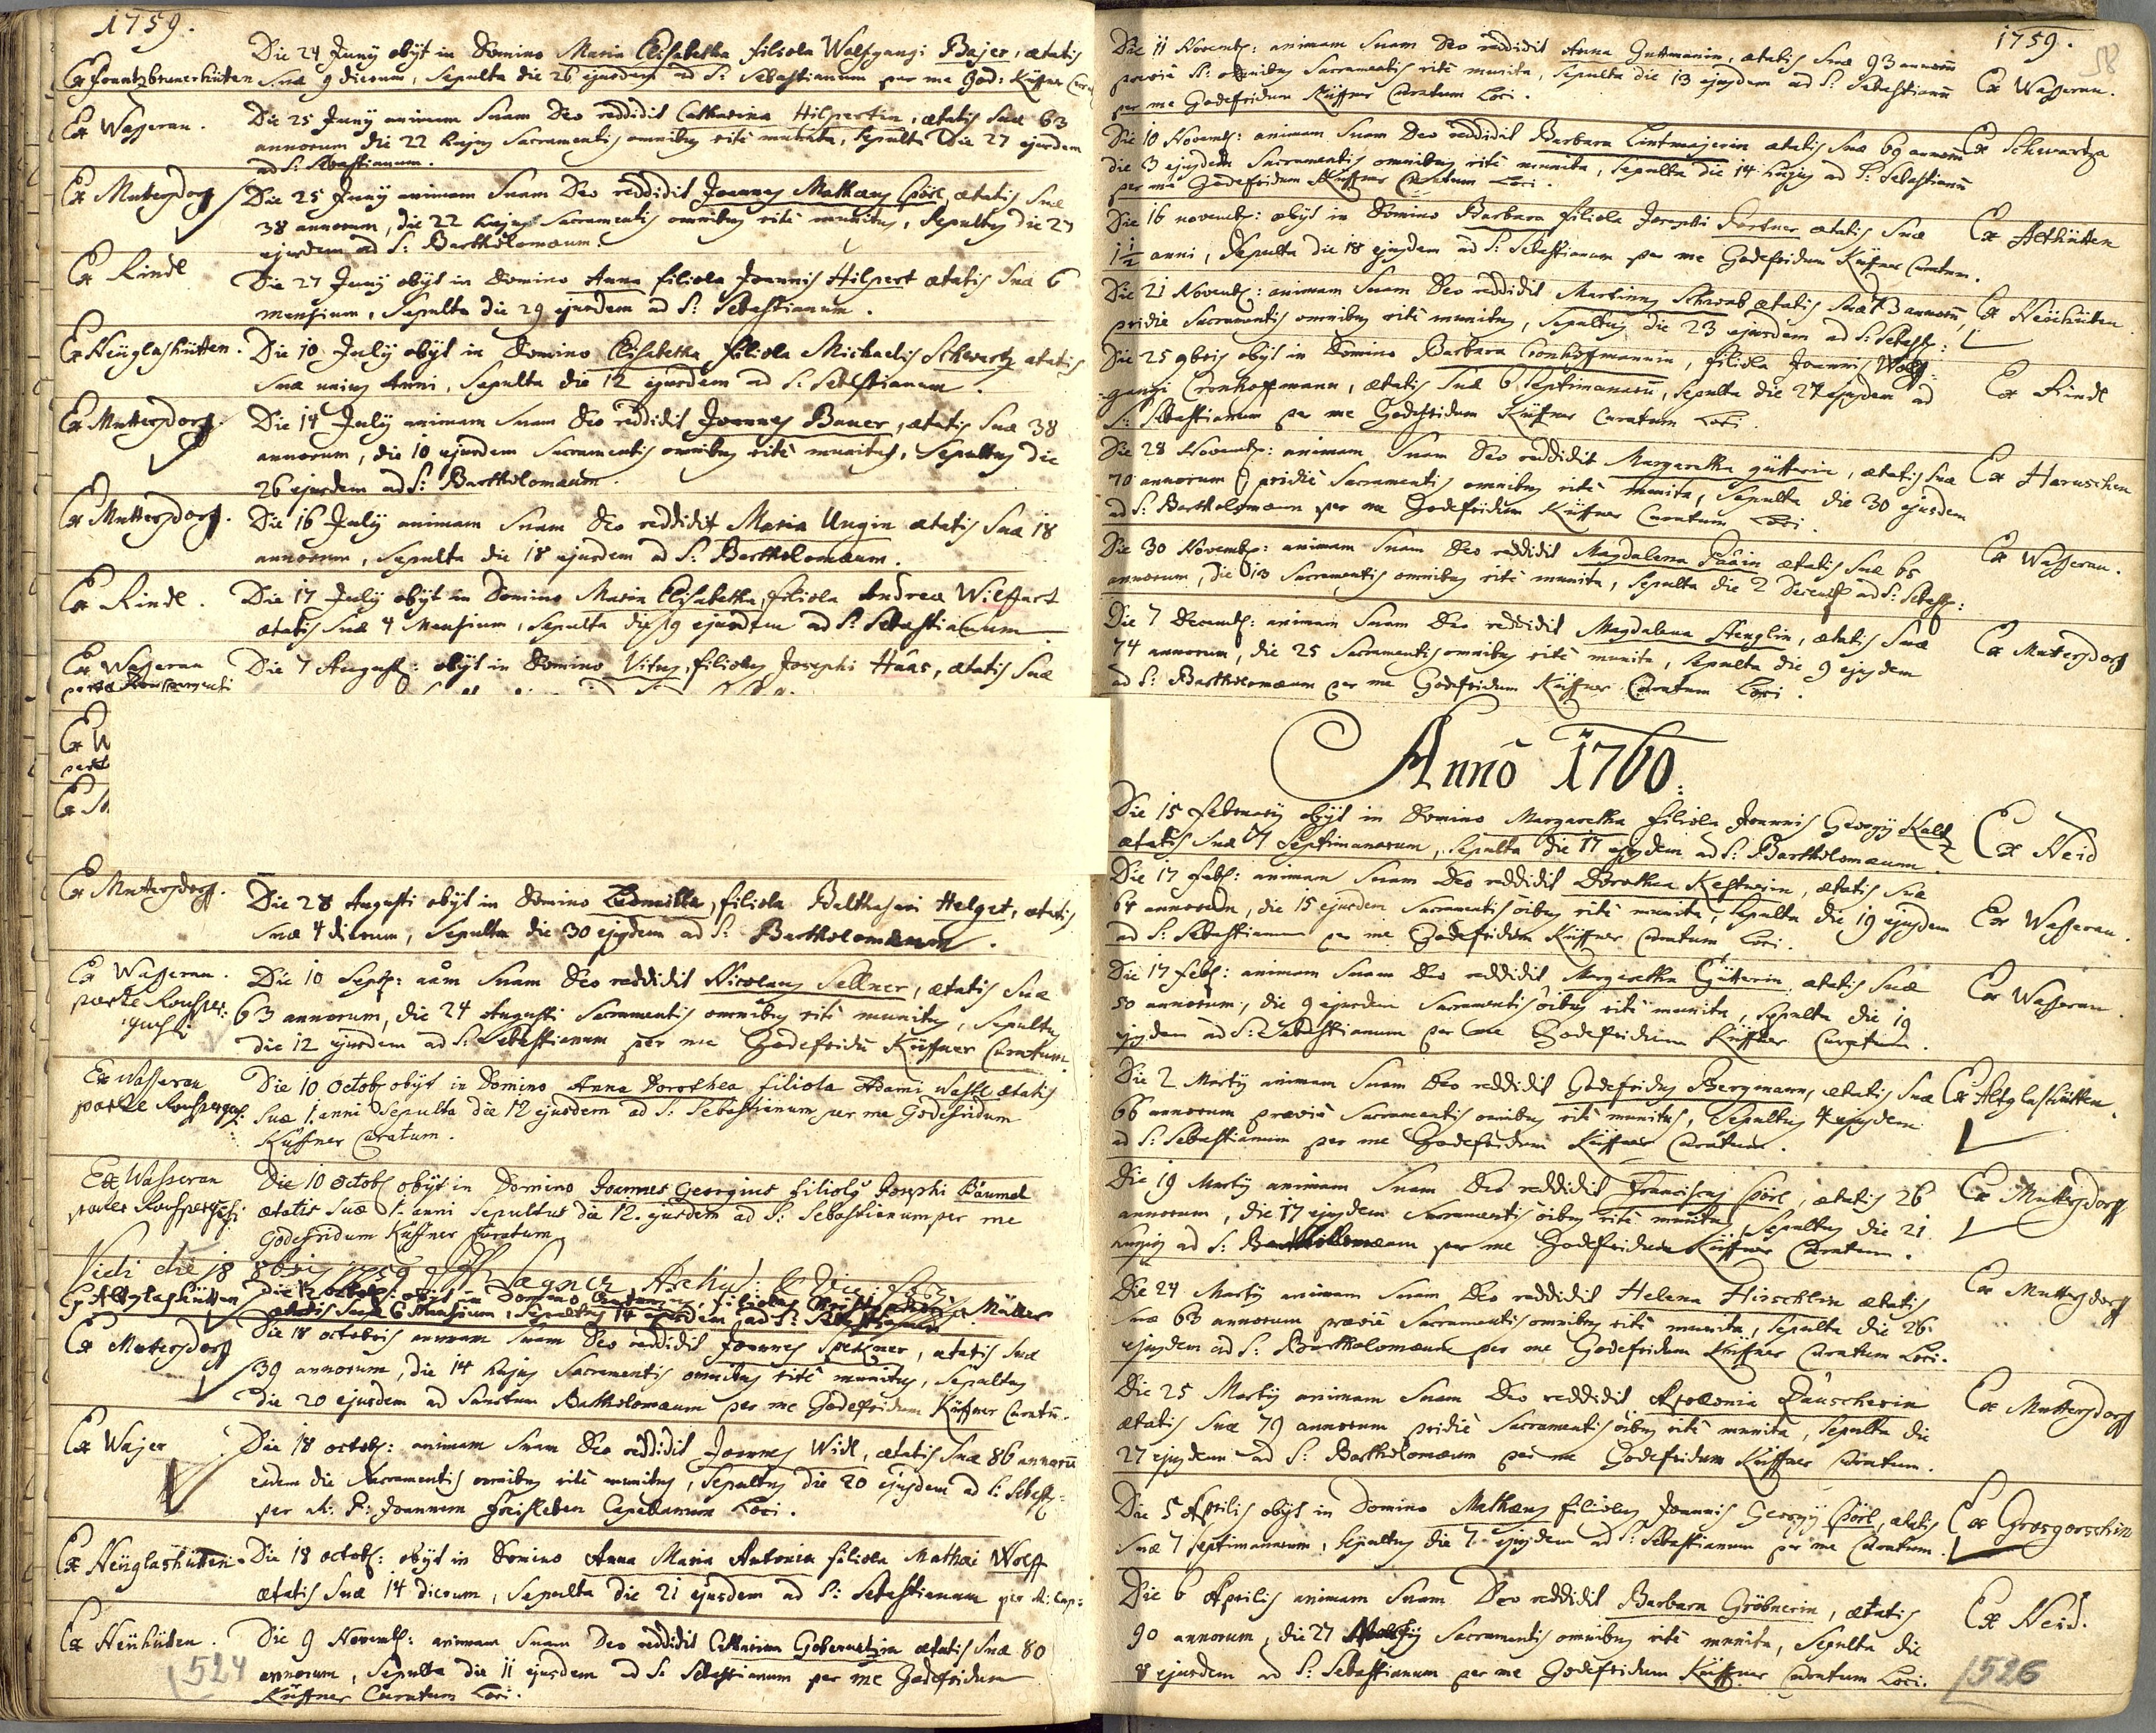 1759.
Ex Frantzbrunerhütten Die 24 Juny obyt in Domino Maria Elisabetha filiola Wolfgangi Bajer, ætatis
suæ 9 dierum, sepulta die 26 ejusdem ad S: Sebastianum per me God: Küffner
Ex Wasserau. Die 25 Juny animam suam Deo reddidit Catharina Hilpertin, ætatis suæ 63
annorum die 22 hujus Sacramentis omnibus ritè munita, sepulta Die 27 ejusdem
ad S: Sebastianum.
Ex Mutersdorf Die 25 Juny animam suam Deo reddidit Joannes Mathæus Pörl, ætatis suæ
38 annorum, die 22 hujus Sacramentis omnibus ritè munitus, sepultus die 27
ejusdem ad S: Bartholomæum.
Ex Rindl Die 27 Juny obyt in Domino Anna filiola Joannis Hilpert ætatis suæ 6
mensium, sepulta die 29 ejusdem ad S: Sebastianum.
Ex Neüglashütten. Die 10 July obyt in Domino Elisabetha filiola Michaelis Schwartz ætatis
suæ unius Anni, sepulta die 12 ejusdem ad S: Sebastianum.
Ex Muttersdorf. Die 14 July animam suam Deo reddidit Joannes Bauer, ætatis suæ 38
annorum, die 10 ejusdem Sacramentis omnibus ritè munitus, sepultus die
26 ejusdem ad S: Bartholomæum.
Ex Muttersdorf. Die 16 July animam suam Deo reddidit Maria Ungin ætatis suæ 18
annorum, sepulta die 18 ejusdem ad S: Bartholomæum.
Ex Rindl. Die 17 July obyt in Domino Maria Elisabetha, filiola Andrea Wilffart
ætatis suæ 4 Mensium, sepulta die 19 ejusdem ad S: Sebastianum
Ex Wasserau Die 7 August: obyt in Domino Vitus, filiolus Josephi Haas, ætatis suæ
Ex W
Ex M
Ex Mutersdorf. Die 28 Augusti obyt in Domino Ludmilla, filiola Balthasari Helget, ætatis
suæ 4 dierum, sepulta die 30 ejusdem ad S: Bartholomæum.
Ex Wasserau. Die 10 Sept: aam suam Deo reddidit Nicolaus Sellner, ætatis suæ
63 annorum, die 24 Augusti Sacramentis omnibus ritè munitus, sepultus
die 12 ejusdem ad S: Sebastianum per me Godefridu Küffner Curatum.
Ex Wasserau Die 10 Octob obyt in Domino Anna Dorothea filiola Adami Wastl ætatis
suæ 1. anni sepulta die 12 ejusdem ad S: Sebastianum per me Godefridum
Küffner Curatum.
Ex Wasserau Die 10 Octob obyt in Domino Joannes Georgius filiolus Josephi Bäumel
ætatis suæ 1. anni sepultus die 12. ejusdem ad S: Sebastianum per me
Godefridum Küffner Curatum
Vidi die 18 8bris 1759
Ex Altglashütten Die 12 octob: obyt in Domino filiolus Müller
ætatis suæ 6 Mensium, sepultus 14 ejusdem ad S: Sebastianum
Ex Mutersdorf Die 18 octobris animam suam Deo reddidit Joannes Spekner, ætatis suæ
39 annorum, die 14 hujus Sacramentis omnibus ritè munitus, sepultus
die 20 ejusdem ad Sanctum Bartholomæum per me Godefridum Küffner Curatū.
Ex Wajer Die 18 octob: animam suam Deo reddidit Joannes Widl, ætatis suæ 86 annorū
eadem die Sacramentis omnibus ritè munitus, sepultus die 20 ejusdem ad S: Sebast:
per A: P: Joannem Freisleben Capellanum Loci.
Ex Neüglashütten. Die 18 octob: obyt in Domino Anna Maria Antonia filiola Mathæi Wolff
ætatis suæ 14 dierum, sepulta die 21 ejusdem ad S: Sebastianum per A: Cap:
Ex Neühütten. Die 9 Novemb: animam suam Deo reddidit Catharina Gobernatzin ætatis suæ 80
annorum, sepulta die 11 ejusdem ad S: Sebastianum per me Godefridum
Küffner Curatum Loci.
524
1759.
58
Die 11 Novemb: animam suam Deo reddidit Anna Guttmanin, ætatis suæ 93 annorū Ex Wasserau.
prævie S: omnibus Sacramentis ritè munita, sepulta die 13 ejusdem ad S: Sebastianū
per me Godefridum Küffner Curatum Loci.
Die 10 Novemb: animam suam Deo reddidit Barbara Lintmajerin ætatis suæ 69 annorū Ex Schwartza
die 3 ejusdem Sacramentis omnibus ritè munita, sepulta die 14 hujus ad S: Sebastianū
per me Godefridum Küffner Curatum Loci.
Die 16 novemb: obyt in Domino Barbara filiola Josephi Fortner ætatis suæ Ex Althütten
1 1/2 anni, sepulta die 18 ejusdem ad S: Sebastianum per me Godefridum Küffner Curatum.
Die 21 Novemb: animam suam Deo reddidit Martinus Schwab ætatis suæ 73 annorū Ex Neühütten.
pridie Sacramentis omnibus ritè munitus, sepultus die 23 ejusdem ad S: Sebast:
Die 25 9bris obyt in Domino Barbara Cronhoffmannin, filiola Joannis Wolf: Ex Rindl
gangi Cronhoffmann, ætatis suæ 6 septimanarū, sepulta die 27 ejusdem ad
S: Sebastianum per me Godefridum Küffner Curatum Loci.
Die 28 Novemb: animam suam Deo reddidit Margaretha Gütterin, ætatis suæ Ex Haruschen
70 annorum pridiè Sacramentis omnibus ritè munita, sepulta die 30 ejusdem
ad S: Bartholomæum per me Godefridum Küffner Curatum Loci.
Die 30 Novemb: animam suam Deo reddidit Magdalena Pääin ætatis suæ 65 Ex Wasserau.
annorum, die 13 Sacramentis omnibus ritè munita, sepulta die 2 Decemb ad S: Sebast:
Die 7 Decemb: animam suam Deo reddidit Magdalena Stenglin, ætatis suæ Ex Mutersdorf
74 annorum, die 25 Sacramentis omnibus ritè munita, sepulta die 9 ejusdem
ad S: Bartholomæum per me Godefridum Küffner Curatum Loci.
Anno 1760.
Die 15 February obyt in Domino Margaretha filiola Joannis Georgy Kaltz Ex Neid
ætatis suæ 7 Septimanarum, sepulta die 17 ejusdem ad S: Bartholomæum.
Die 17 feb: animam suam Deo reddidit Dorothea Kestnerin, ætatis suæ Ex Wasserau.
64 annorum, die 15 ejusdem Sacramentis oibus ritè munita, sepulta die 19 ejusdem
ad S: Sebastianum per me Godefridum Küffner Curatum Loci.
Die 17 feb: animam suam Deo reddidit Margaretha Gütterin, ætatis suæ Ex Wasserau.
50 annorum, die 9 ejusdem Sacramentis oibus ritè munita, sepulta die 19
ejusdem ad S: Sebastianum per me Godefridum Küffner Curatum.
Die 2 Marty animam suam Deo reddidit Godefridus Bergmann, ætatis suæ Ex Altglashütten.
66 annorum prævie Sacramentis omnibus ritè munitus, sepultus 4 ejusdem
ad S: Sebastianum per me Godefridum Küffner Curatum.
Die 19 Marty animam suam Deo reddidit Franciscus Pörl, ætatis 26 Ex Muttersdorf
annorum, die 17 ejusdem Sacramentis oibus ritè munitus, sepultus die 21
hujus ad S: Bartholomæum per me Godefridum Küffner Curatum.
Die 24 Marty animam suam Deo reddidit Helena Hirschlin ætatis Ex Muttersdorf
suæ 63 annorum prævie Sacramentis omnibus ritè munita, sepulta die 26
ejusdem ad S: Bartholomæum per me Godefridum Küffner Curatum Loci.
Die 25 Marty animam suam Deo reddidit Apolonia Rauscherin Ex Muttersdorf
ætatis suæ 79 annorum pridiè Sacramentis oibus ritè munita, sepulta die
27 ejusdem ad S: Bartholomæum per me Godefridum Küffner Curatum.
Die 5 Aprilis obyt in Domino Mathæus filiolus Joannis Georgy Pörl, ætatis Ex Grosgorschin
suæ 7 septimanarum, sepultus die 7 ejusdem ad S: Sebastianum per me Curatum.
Die 6 Aprilis animam suam Deo reddidit Barbara Gröbnerin, ætatis Ex Neid.
90 annorum, die 27 Marty Sacramentis omnibus ritè munita, sepulta die
8 ejusdem ad S: Sebastianum per me Godefridum Küffner Curatum Loci.
1526